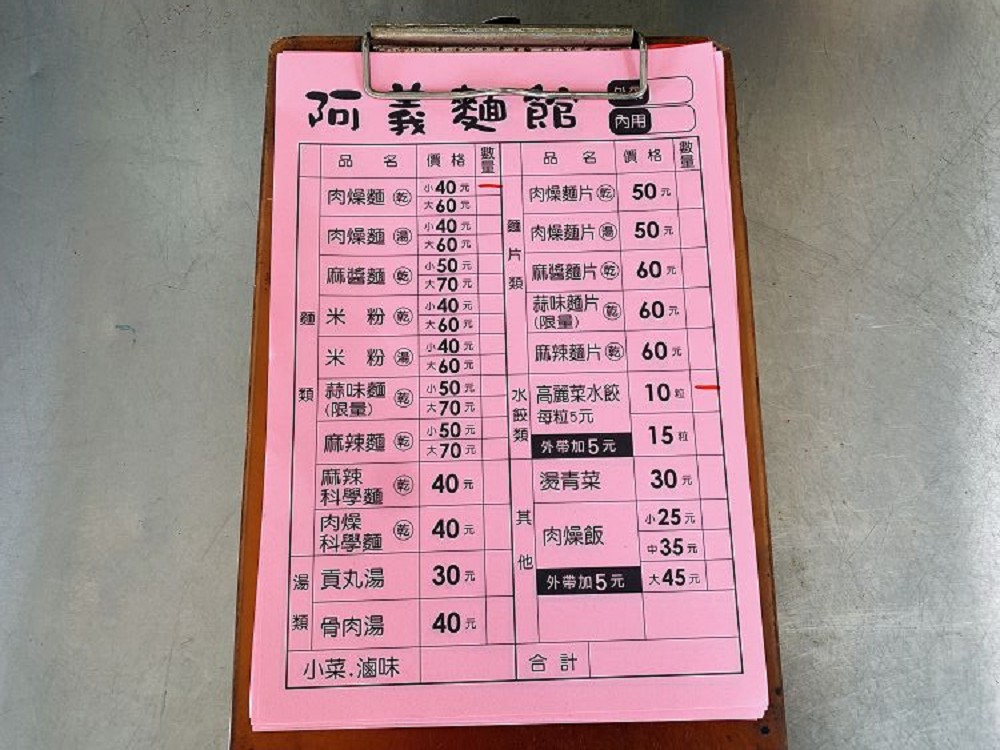 阿義麵館
外帶
內用
品名 價格 數量
麵類
肉燥麵 乾 小40元
大60元
肉燥麵 湯 小40元
大60元
麻醬麵 乾 小50元
大70元
米粉 乾 小40元
大60元
米粉 湯 小40元
大60元
蒜味麵 乾 小50元
(限量) 大70元
麻辣麵 乾 小50元
大70元
麻辣
科學麵 乾 40元
肉燥
科學麵 乾 40元
湯類
貢丸湯 30元
骨肉湯 40元
小菜.滷味
品名 價格 數量
麵片類
肉燥麵片 乾 50元
肉燥麵片 湯 50元
麻醬麵片 乾 60元
蒜味麵片 乾 60元
(限量)
麻辣麵片 乾 60元
水餃類
高麗菜水餃 10粒
每粒5元
15粒
外帶加5元
其他
燙青菜 30元
肉燥飯 小25元
中35元
外帶加5元 大45元
合計